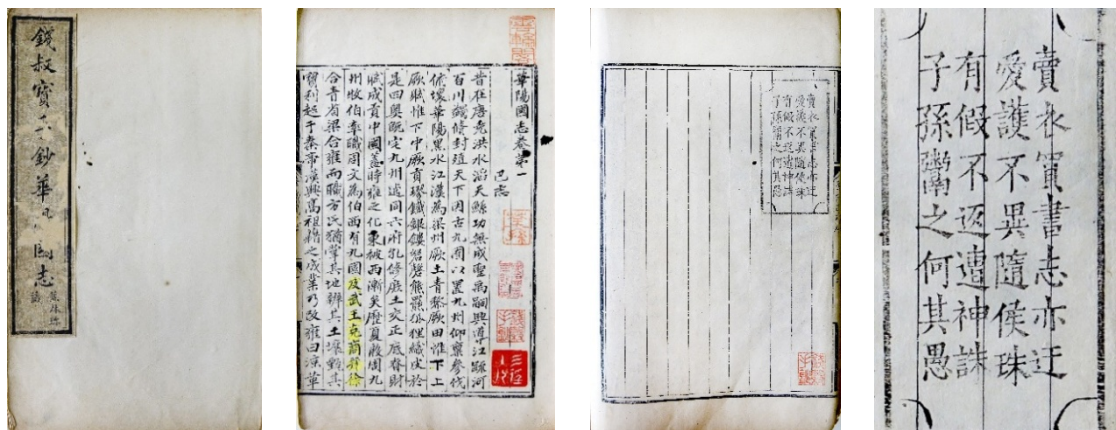 錢叔寶手鈔華陽國志
華陽國志卷第一
巴志
昔在唐堯洪水滔天鯀功無成聖禹嗣興導江疏河
百川蠲修封殖天下因古九囿以置九州仰稟參伐
俯壤華陽黑水江漢為梁州厥土青黎厥田惟下上
厥賦惟下中厥貢璆鐵銀鏤砮磬熊羆狐狸織皮於
是四奧既宅九州逌同六府孔修庶土交正厎慎財
賦成貢中國蓋時雍之化東被西漸矣歷夏殷周九
州牧伯率職周文為伯西有九國及武王克商并徐
合青省梁合雍而職方氏猶掌其地辨其土壤甄其
寶利迄于秦帝漢興高祖藉之成業乃改雍曰涼革
賣衣買書志亦迂
愛護不異隨侯珠
有假不返遭神誅
子孫鬻之何其愚
賣衣買書志亦迂
愛護不異隨侯珠
有假不返遭神誅
子孫鬻之何其愚